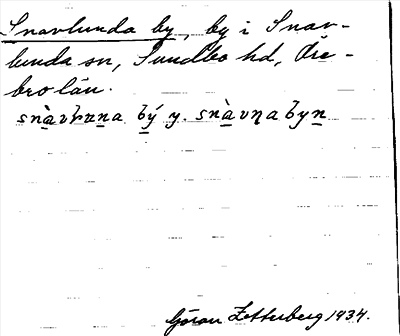 Snavlunda by, by i Snav-
lunda sn, Sundbo hd, Öre-
bro län.
snàvḷuṉa bý y. snàvṇa byṉ
Göran Zetterberg 1934.